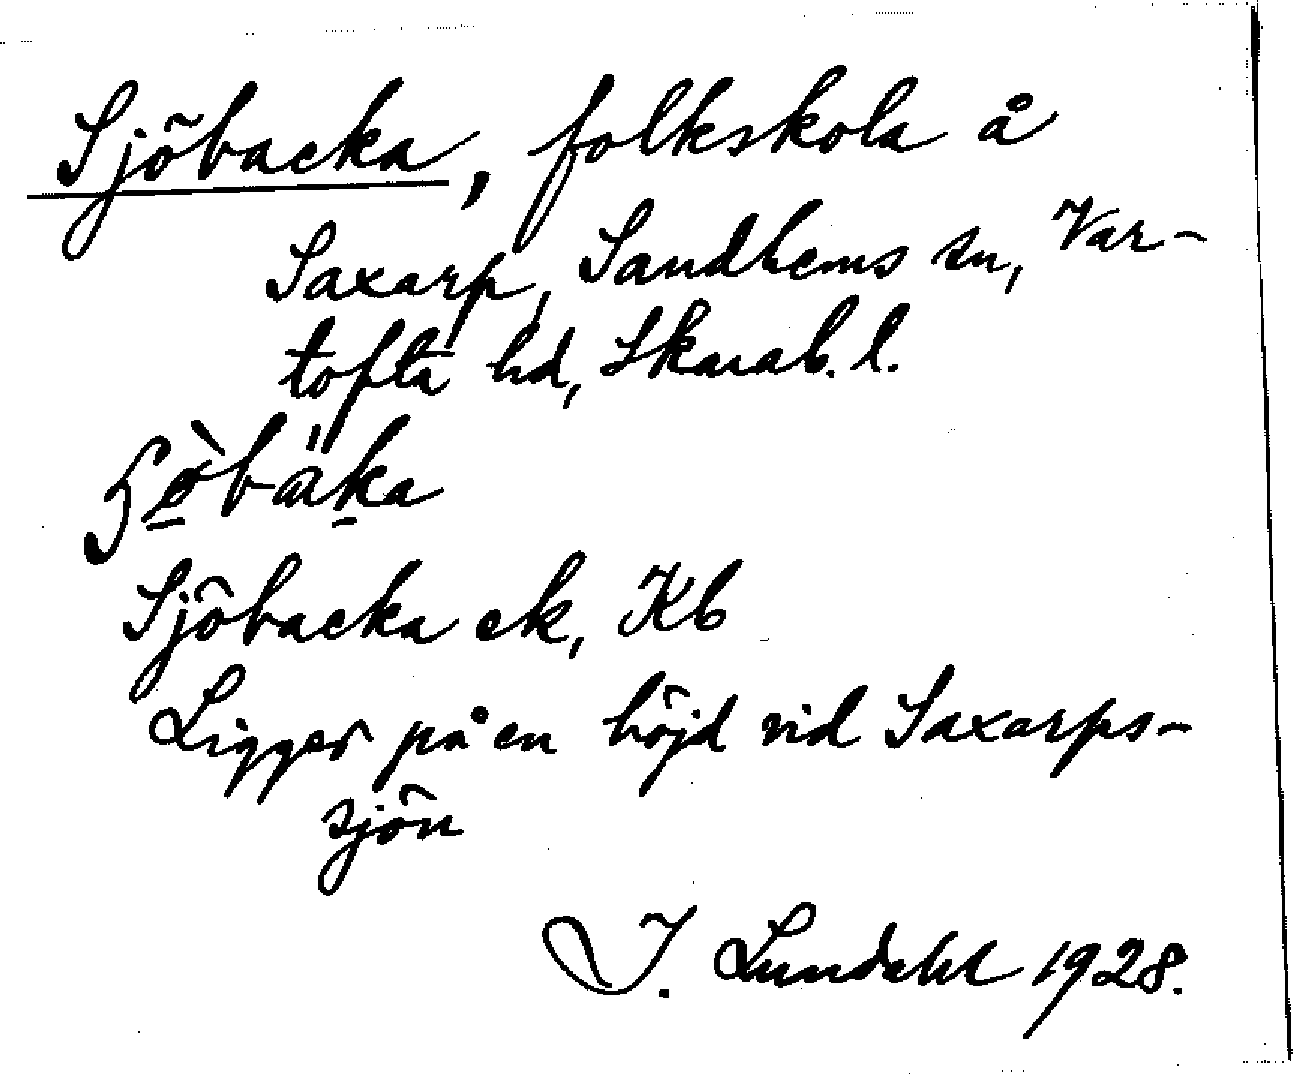 Sjöbacka, folkskola å
Saxarp, Sandhems sn, Var-
tofta hd, Skarab. l.
Sjöbacka ek, Kb
Ligger på en höjd vid Saxarps-
sjön
I. Lundahl 1928.